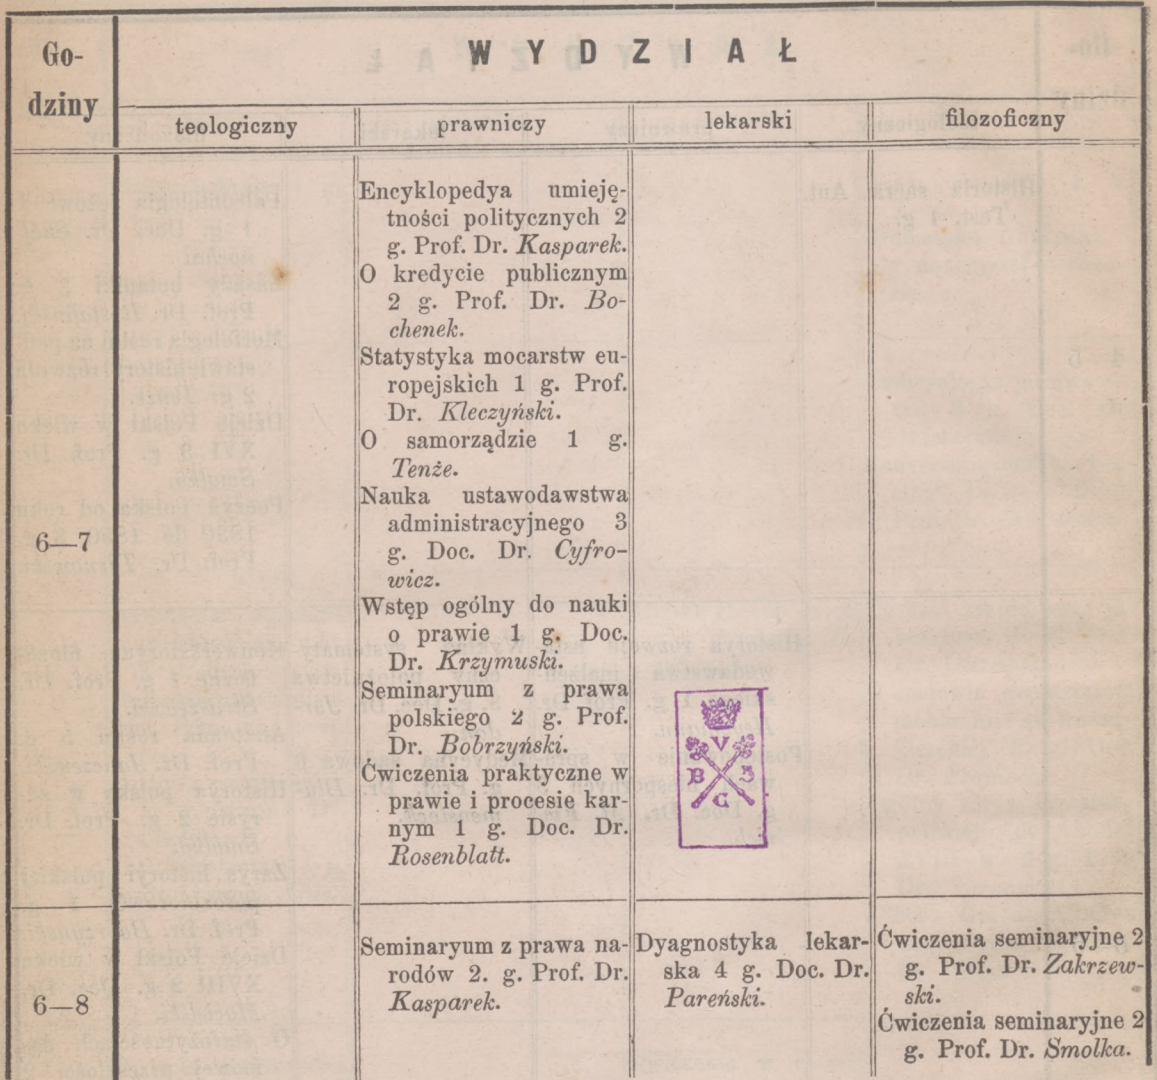 Go-
dziny
WYDZIAŁ
teologiczny
prawniczy
lekarski
filozoficzny
6—7
Encyklopedya umieję-
tności politycznych 2
g. Prof. Dr. Kasparek.
O kredycie publicznym
2 g. Prof. Dr. Bo-
chenek.
Statystyka mocarstw eu-
ropejskich 1 g. Prof.
Dr. Kleczyński.
O samorządzie 1 g.
Tenże.
Nauka ustawodawstwa
administracyjnego 3
g. Doc. Dr. Cyfro-
wicz.
Wstęp ogólny do nauki
o prawie 1 g. Doc.
Dr. Krzymuski.
Seminaryum z prawa
polskiego 2 g. Prof.
Dr. Bobrzyński.
Ćwiczenia praktyczne w
prawie i procesie kar-
nym 1 g. Doc. Dr.
Rosenblatt.
V
B J
G
6—8
Seminaryum z prawa na-
rodów 2. g. Prof. Dr.
Kasparek.
Dyagnostyka lekar-
ska 4 g. Doc. Dr.
Pareński.
Ćwiczenia seminaryjne 2
g. Prof. Dr. Zakrzew-
ski.
Ćwiczenia seminaryjne 2
g. Prof. Dr. Smolka.